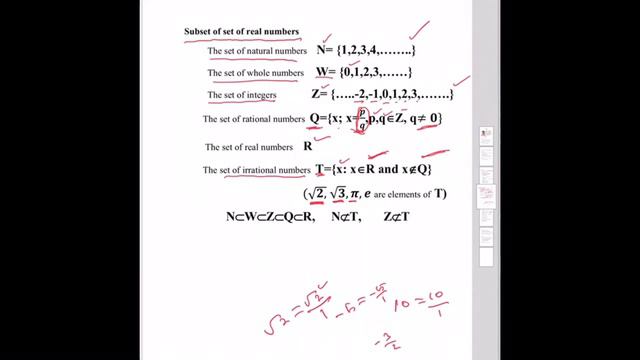 Subset of set of real numbers
The set of natural numbers N= {1,2,3,4,........}
The set of whole numbers W= {0,1,2,3,......}
The set of integers Z= {.....-2,-1,0,1,2,3,.......}
The set of rational numbers Q={x; x=p/q,p,q∈Z, q≠ 0}
The set of real numbers R
The set of irrational numbers T={x: x∈R and x∉Q}
(√2, √3, π, e are elements of T)
N⊂W⊂Z⊂Q⊂R, N⊄T, Z⊄T
√2 = √2/1 10 = 10/1
-3/2